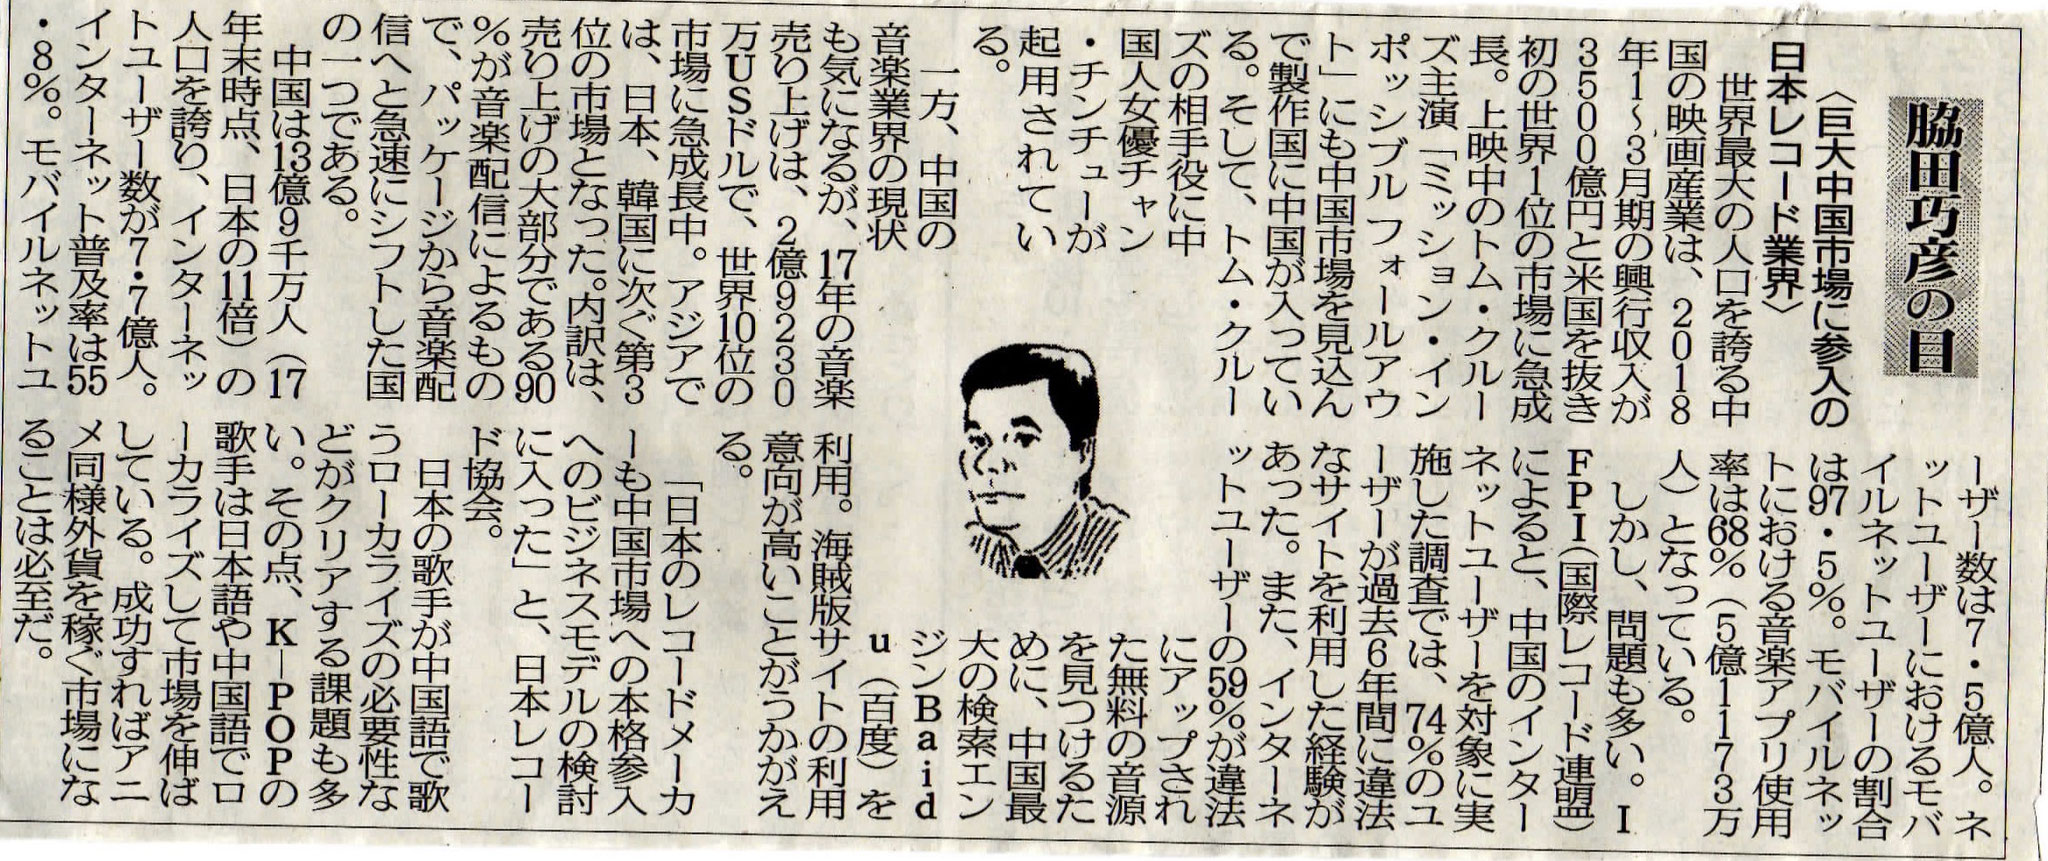 脇田巧彦の目
〈巨大中国市場に参入の
日本レコード業界〉
世界最大の人口を誇る中
国の映画産業は、2018
年1～3月期の興行収入が
3500億円と米国を抜き
初の世界1位の市場に急成
長。上映中のトム・クルー
ズ主演「ミッション・イン
ポッシブル フォールアウ
ト」にも中国市場を見込ん
で製作国に中国が入ってい
る。そして、トム・クルー
ズの相手役に中
国人女優チャン
・チンチューが
起用されてい
る。
一方、中国の
音楽業界の現状
も気になるが、17年の音楽
売り上げは、2億9230
万USドルで、世界10位の
市場に急成長中。アジアで
は、日本、韓国に次ぐ第3
位の市場となった。内訳は、
売り上げの大部分である90
%が音楽配信によるもの
で、パッケージから音楽配
信へと急速にシフトした国
の一つである。
中国は13億9千万人（17
年末時点、日本の11倍）の
人口を誇り、インターネッ
トユーザー数が7・7億人。
インターネット普及率は55
・8%。モバイルネットユ
ーザー数は7・5億人。ネ
ットユーザーにおけるモバ
イルネットユーザーの割合
は97・5%。モバイルネッ
トにおける音楽アプリ使用
率は68%（5億1173万
人）となっている。
しかし、問題も多い。I
FPI（国際レコード連盟）
によると、中国のインター
ネットユーザーを対象に実
施した調査では、74%のユ
ーザーが過去6年間に違法
なサイトを利用した経験が
あった。また、インターネ
ットユーザーの59%が違法
にアップされ
た無料の音源
を見つけるた
めに、中国最
大の検索エン
ジンBaid
u（百度）を
利用。海賊版サイトの利用
意向が高いことがうかがえ
る。
「日本のレコードメーカ
ーも中国市場への本格参入
へのビジネスモデルの検討
に入った」と、日本レコー
ド協会。
日本の歌手が中国語で歌
うローカライズの必要性な
どがクリアする課題も多
い。その点、K―POPの
歌手は日本語や中国語でロ
ーカライズして市場を伸ば
している。成功すればアニ
メ同様外貨を稼ぐ市場にな
ることは必至だ。